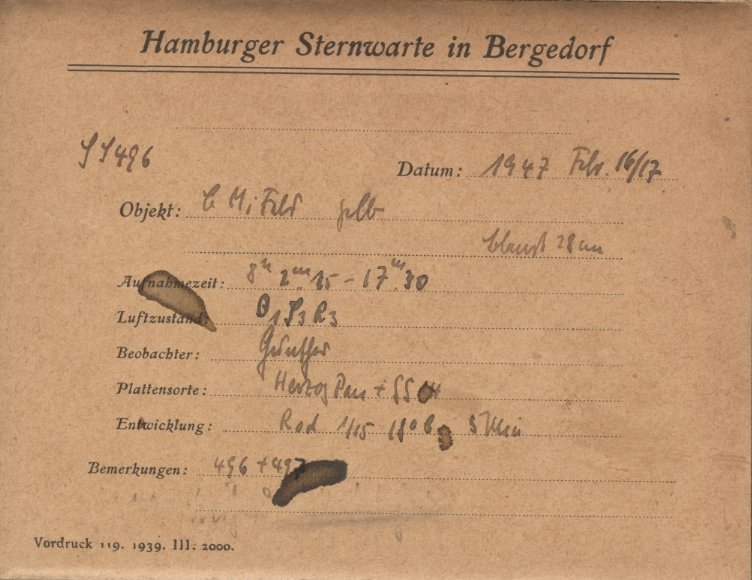 Hamburger Sternwarte in Bergedorf
SS496
Datum: 1947 Febr. 16/17
Objekt: Feld gelb
28cm
Aufnahmezeit: 8h 2m 15 - 17m 30
Luftzustand: S3 R3
Beobachter: Günther
Plattensorte: Herzog Pan + SS
Entwicklung: Rod 1/15 18° 5 Min
Bemerkungen: 496 + 497
Vordruck 119. 1939. III. 2000.